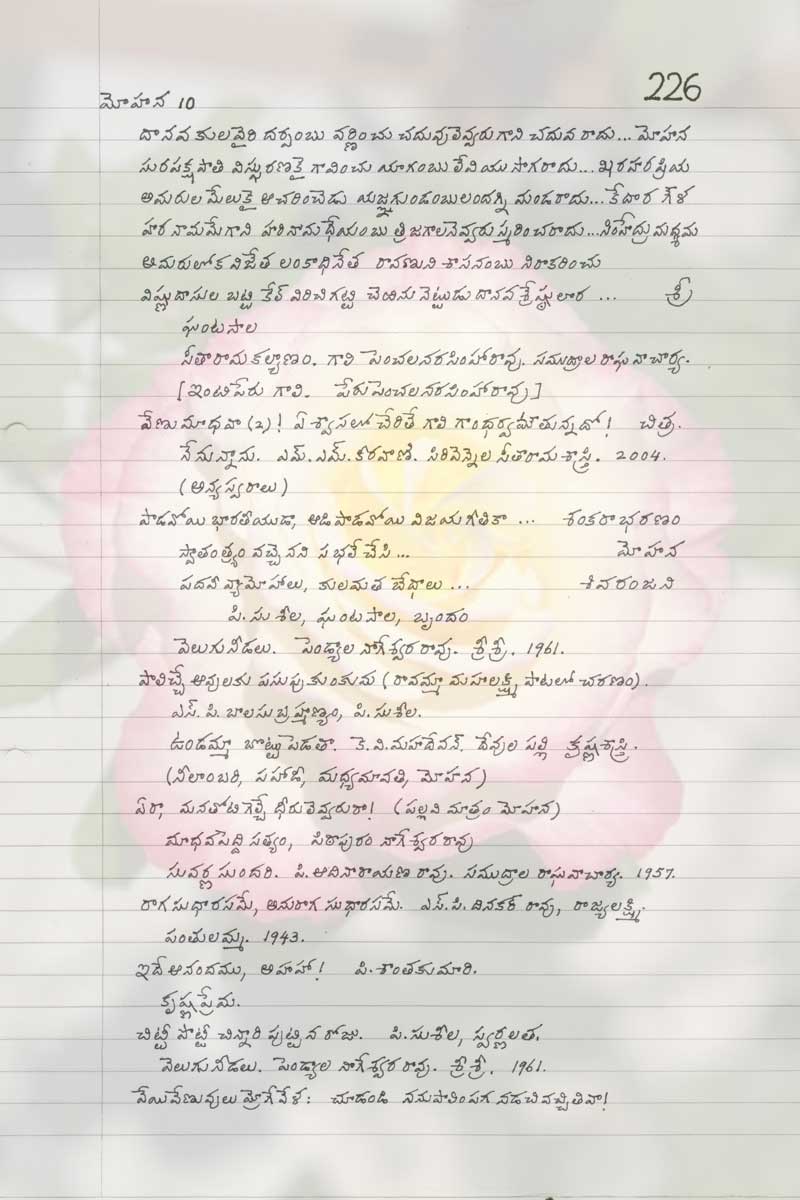 226
మోహన 10
దానవ కులవైరి దర్పంబు వర్ణించు చదువులెవ్వరుగాని చదువ రాదు... మోహన
సురపక్షపాతి విస్ఫురణకై గావించు యాగంబు లేవియు సాగరాదు... ఖరహరప్రియ
అమరుల మేలుకై ఆచరించెడు యజ్ఞగుండంబులందగ్ని మండరాదు... కేదార గౌళ
హరనామమేగాని హరినామధేయంబు త్రిజగాలనెవ్వరు స్మరించరాదు...సింహేంద్రమధ్యమ
అమరులోకవిజేత లంకాధినేత రావణుని శాసనంబు నిరాకరించు
విష్ణుదాసుల బట్టి కేల్ విరిచిగట్టి చెఱను నెట్టుడు దానవశ్రేష్ఠులార ... శ్రీ
ఘంటసాల
సీతారామకల్యాణం. గాలి పెంచలనరసింహారావు. సముద్రాల రాఘవాచార్య.
[ఇంటిపేరు గాలి. పేరు పెంచలనరసింహారావు]
వేణుమాధవా (2)! ఏ శ్వాసలో చేరితే గాలి గాంధర్వమౌతున్నదో! చిత్ర.
నేనున్నాను. ఎమ్.ఎమ్.కీరవాణి. సిరివెన్నెల సీతారామశాస్త్రి. 2004.
(అన్యస్వరాలు)
పాడవోయి భారతీయుడా, ఆడి పాడవోయి విజయగీతికా ... శంకరాభరణం
స్వాతంత్ర్యం వచ్చెనని సభలే చేసి... మోహన
పదవీవ్యామోహాలు, కులమత భేదాలు ... శివరంజని
పి.సుశీల, ఘంటసాల, బృందం
వెలుగునీడలు. పెండ్యాల నాగేశ్వరరావు. శ్రీశ్రీ. 1961.
పాలిచ్చే ఆవులకు పసుపుకుంకుమ (రావమ్మా మహాలక్ష్మి పాటలో చరణం).
ఎస్.పి.బాలసుబ్రహ్మణ్యం, పి.సుశీల.
ఉండమ్మా బొట్టుపెడతా. కె.వి.మహాదేవన్. దేవులపల్లి కృష్ణశాస్త్రి.
(నీలాంబరి, పహాడీ, మధ్యమావతి, మోహన)
ఏరా, మనతోటి గెల్చే ధీరులెవ్వరురా! (పల్లవి మాత్రం మోహన)
మాధవపెద్ది సత్యం, పిఠాపురం నాగేశ్వరరావు
సువర్ణసుందరి. పి.ఆదినారాయణరావు. సముద్రాల రాఘవాచార్య. 1957.
రాగసుధారసమే, అనురాగ సుధారసమే. ఎస్.పి.దినకర్ రావు, రాజ్యలక్ష్మి.
పంతులమ్మ. 1943.
ఇదే ఆనందము, అహహా! పి.శాంతకుమారి.
కృష్ణప్రేమ.
చిట్టీ పొట్టీ చిన్నారి పుట్టిన రోజు. పి.సుశీల, స్వర్ణలత.
వెలుగునీడలు. పెండ్యాల నాగేశ్వరరావు. శ్రీశ్రీ. 1961.
వేయివేణువులు మ్రోగేవేళ: చూడండి ననుపాలింపగ నడచి వచ్చితివా!